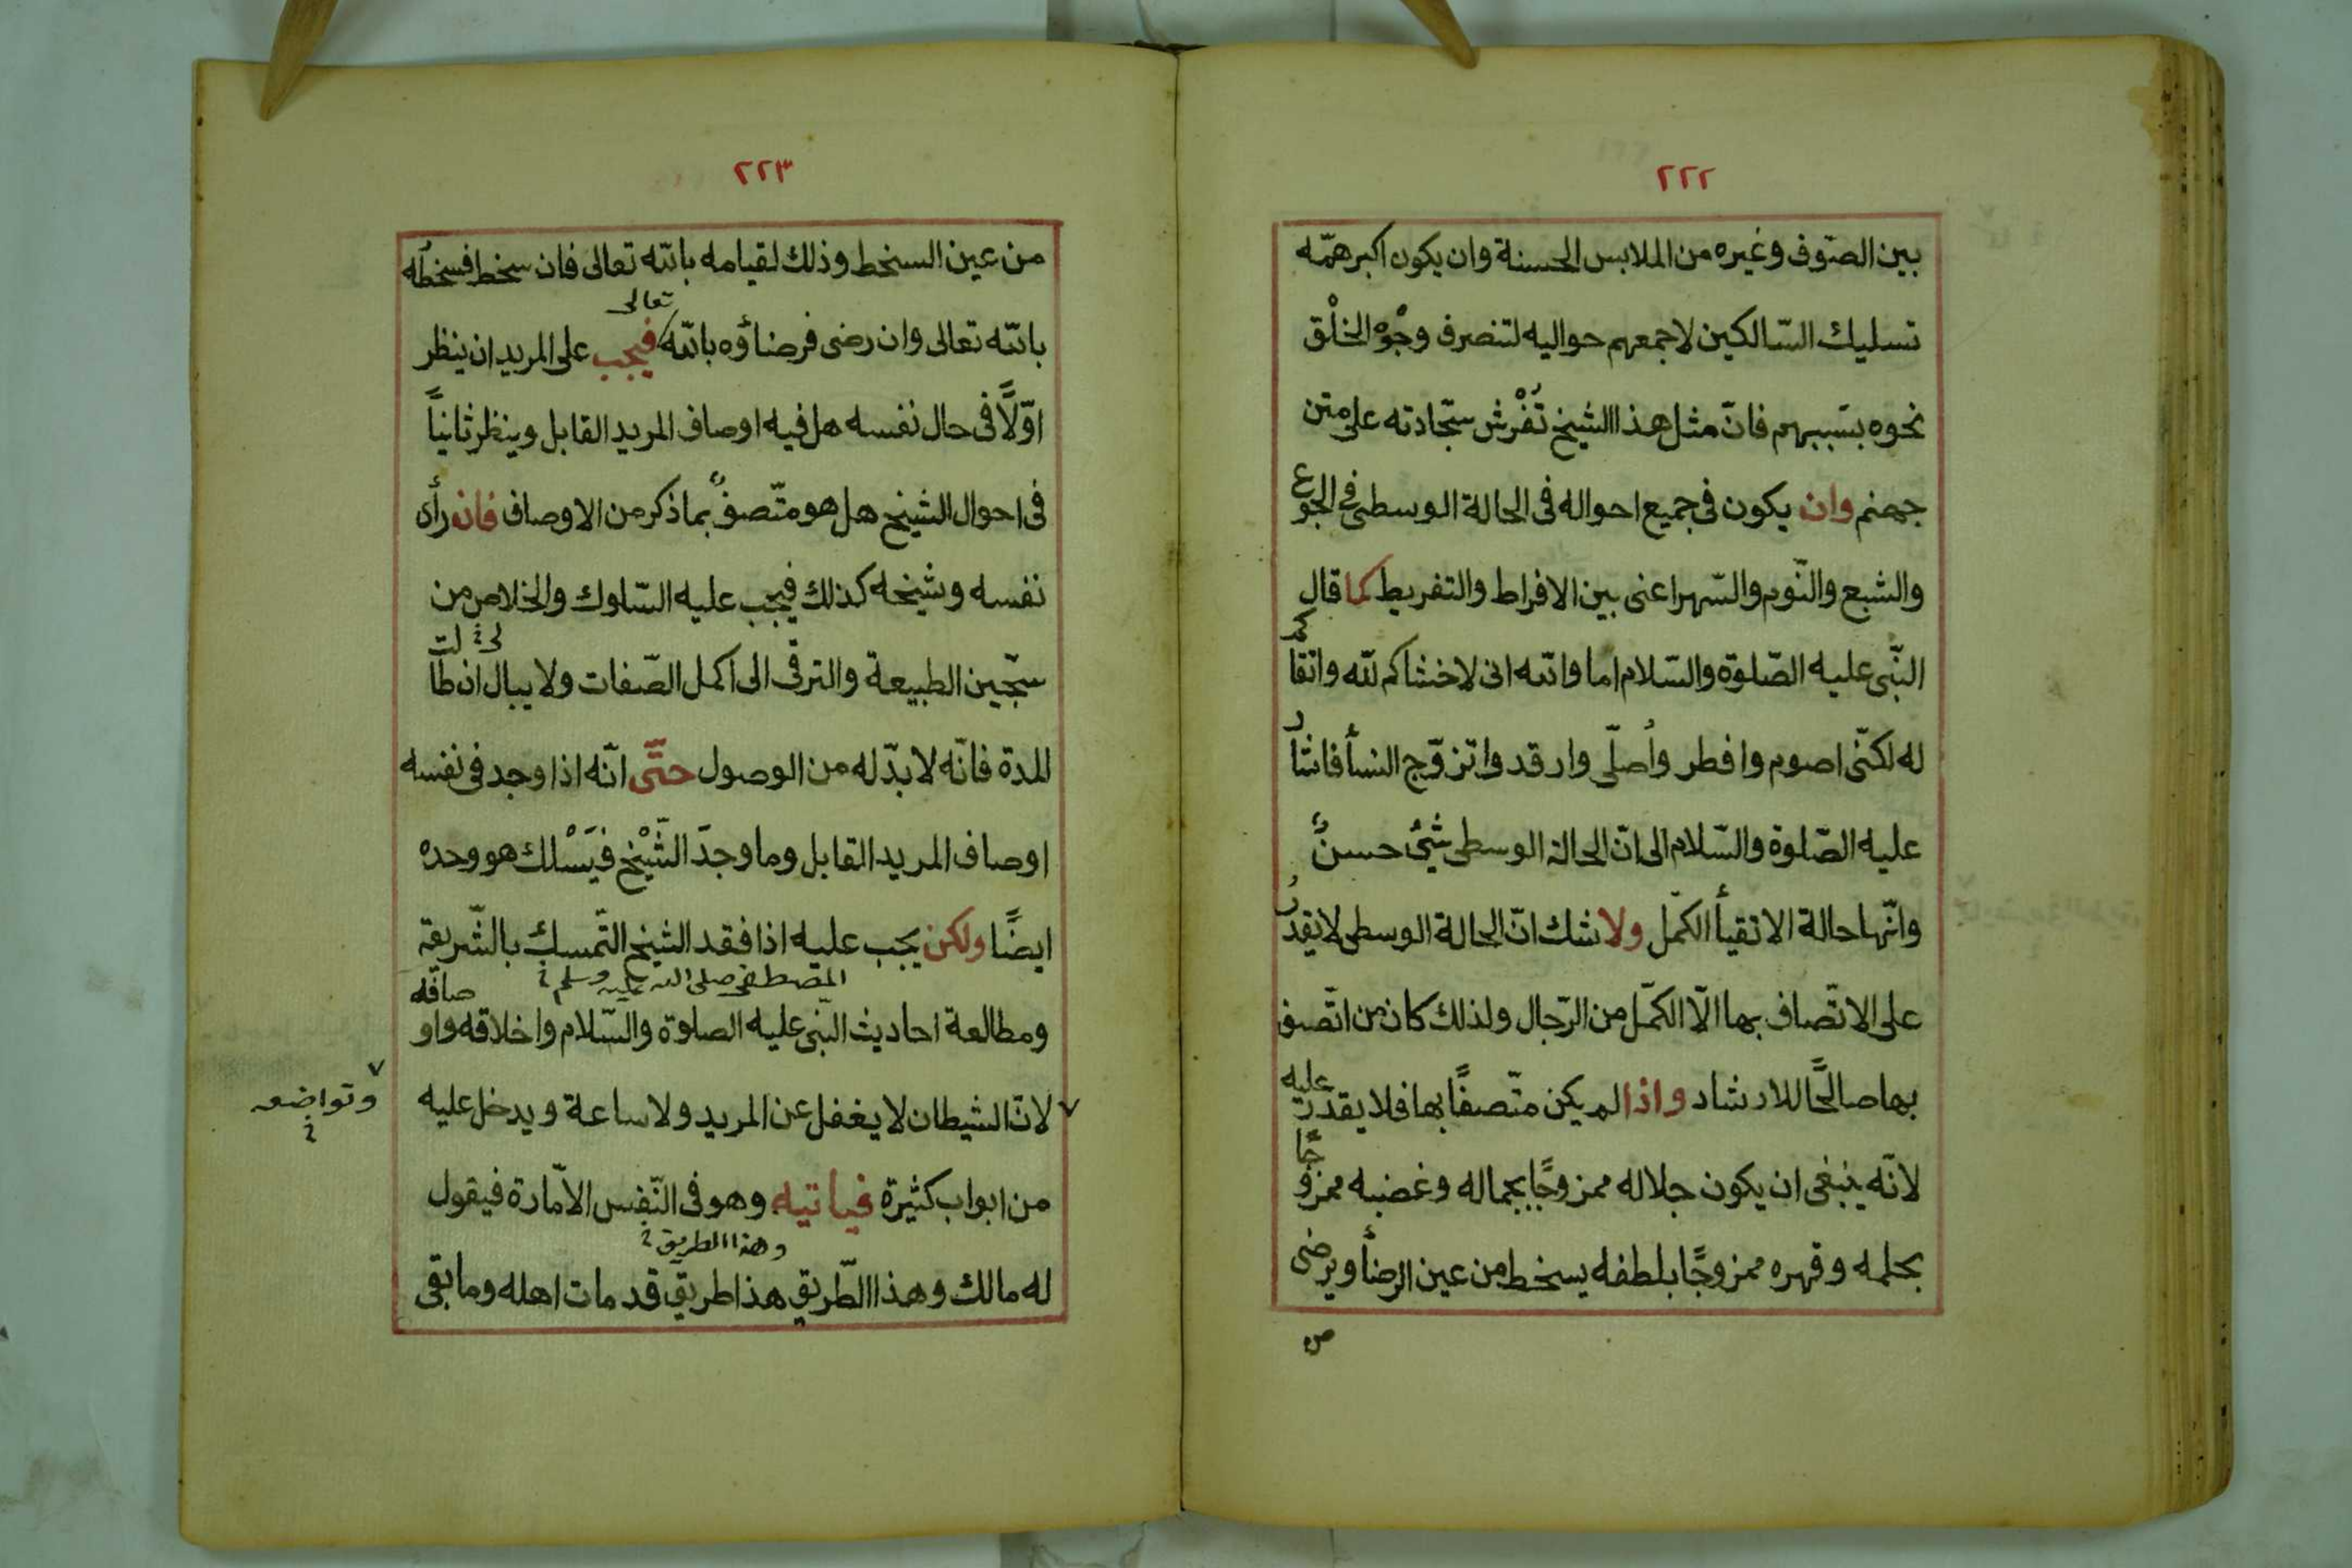 ٢٢٢
بين الصّوف وغيره من الملابس الحسنة وان يكون اكبر همّه
تسليك السّالكين لاجمعهم حواليه لتنصرف وجُوْه الخلْق
نحوه بسَببهم فانّ مثل هذا الشيخ تُفْرش سجّادته على متن
جهنم وان يكون فى جميع احواله فى الحالة الوسطى فى الجوع
والشبع والنّوم والسّهر اعنى بين الافراط والتفريط كما قال
النّبى عليه الصّلوة والسّلام اما والله انى لاخشاكم لله واتقاكم
له لكنّى اصوم وافطر واُصلّى وارقد واتزوّج النسأ فاشار
عليه الصّلوة والسّلام الى انّ الحالة الوسطى شئ حسنٌ
وانّها حالة الاتقيأ الكمّل ولا شك انّ الحالة الوسطى لا يقدرُ
على الاتّصاف بها الّا الكمّل من الرّجال ولذلك كان من اتّصف
بها صالحًا للارشاد واذا لم يكن متّصفًا بها فلا يقدر عليه
لانّه ينبغى ان يكون جلاله ممزوجًا بجماله وغضبه ممزوجًا
بحلمه وقهره ممزوجًا بلطفه يسخط من عين الرضأ ويرضى
من
٢٢٣
من عين السخط وذلك لقيامه بالله تعالى فان سخط فسخطُه
بالله تعالى وان رضى فرضاؤه بالله تعالى فيجب على المريد ان ينظر
اوّلًا فى حال نفسه هل فيه اوصاف المريد القابل وينظر ثانيًا
فى احوال الشيخ هل هو متّصفٌ بما ذكر من الاوصاف فان رأى
نفسه وشيخه كذلك فيجب عليه السّلوك والخلاص من
سجّين الطبيعة والترقى الى اكمل الصّفات ولا يبالى ان طالت
المدة فانّه لا بدّ له من الوصول حتّى انّه اذا وجد فى نفسه
اوصاف المريد القابل وما وجدَ الشَّيْخ فيَسْلك هو وحده
ايضًا ولكن يجب عليه اذا فقد الشيخ التّمسك بالشّريعة
المصطفى صلى الله عليه وسلم
ومطالعة احاديث النّبى عليه الصلوة والسّلام واخلاقه واوصافه
وتواضعه
لانّ الشيطان لا يغفل عن المريد ولا ساعة ويدخل عليه
من ابواب كثيرة فياتيه وهو فى النّفس الامّارة فيقول
وهذا الطريق
له مالك وهذا الطّريق هذا طريق قد مات اهله وما بقى